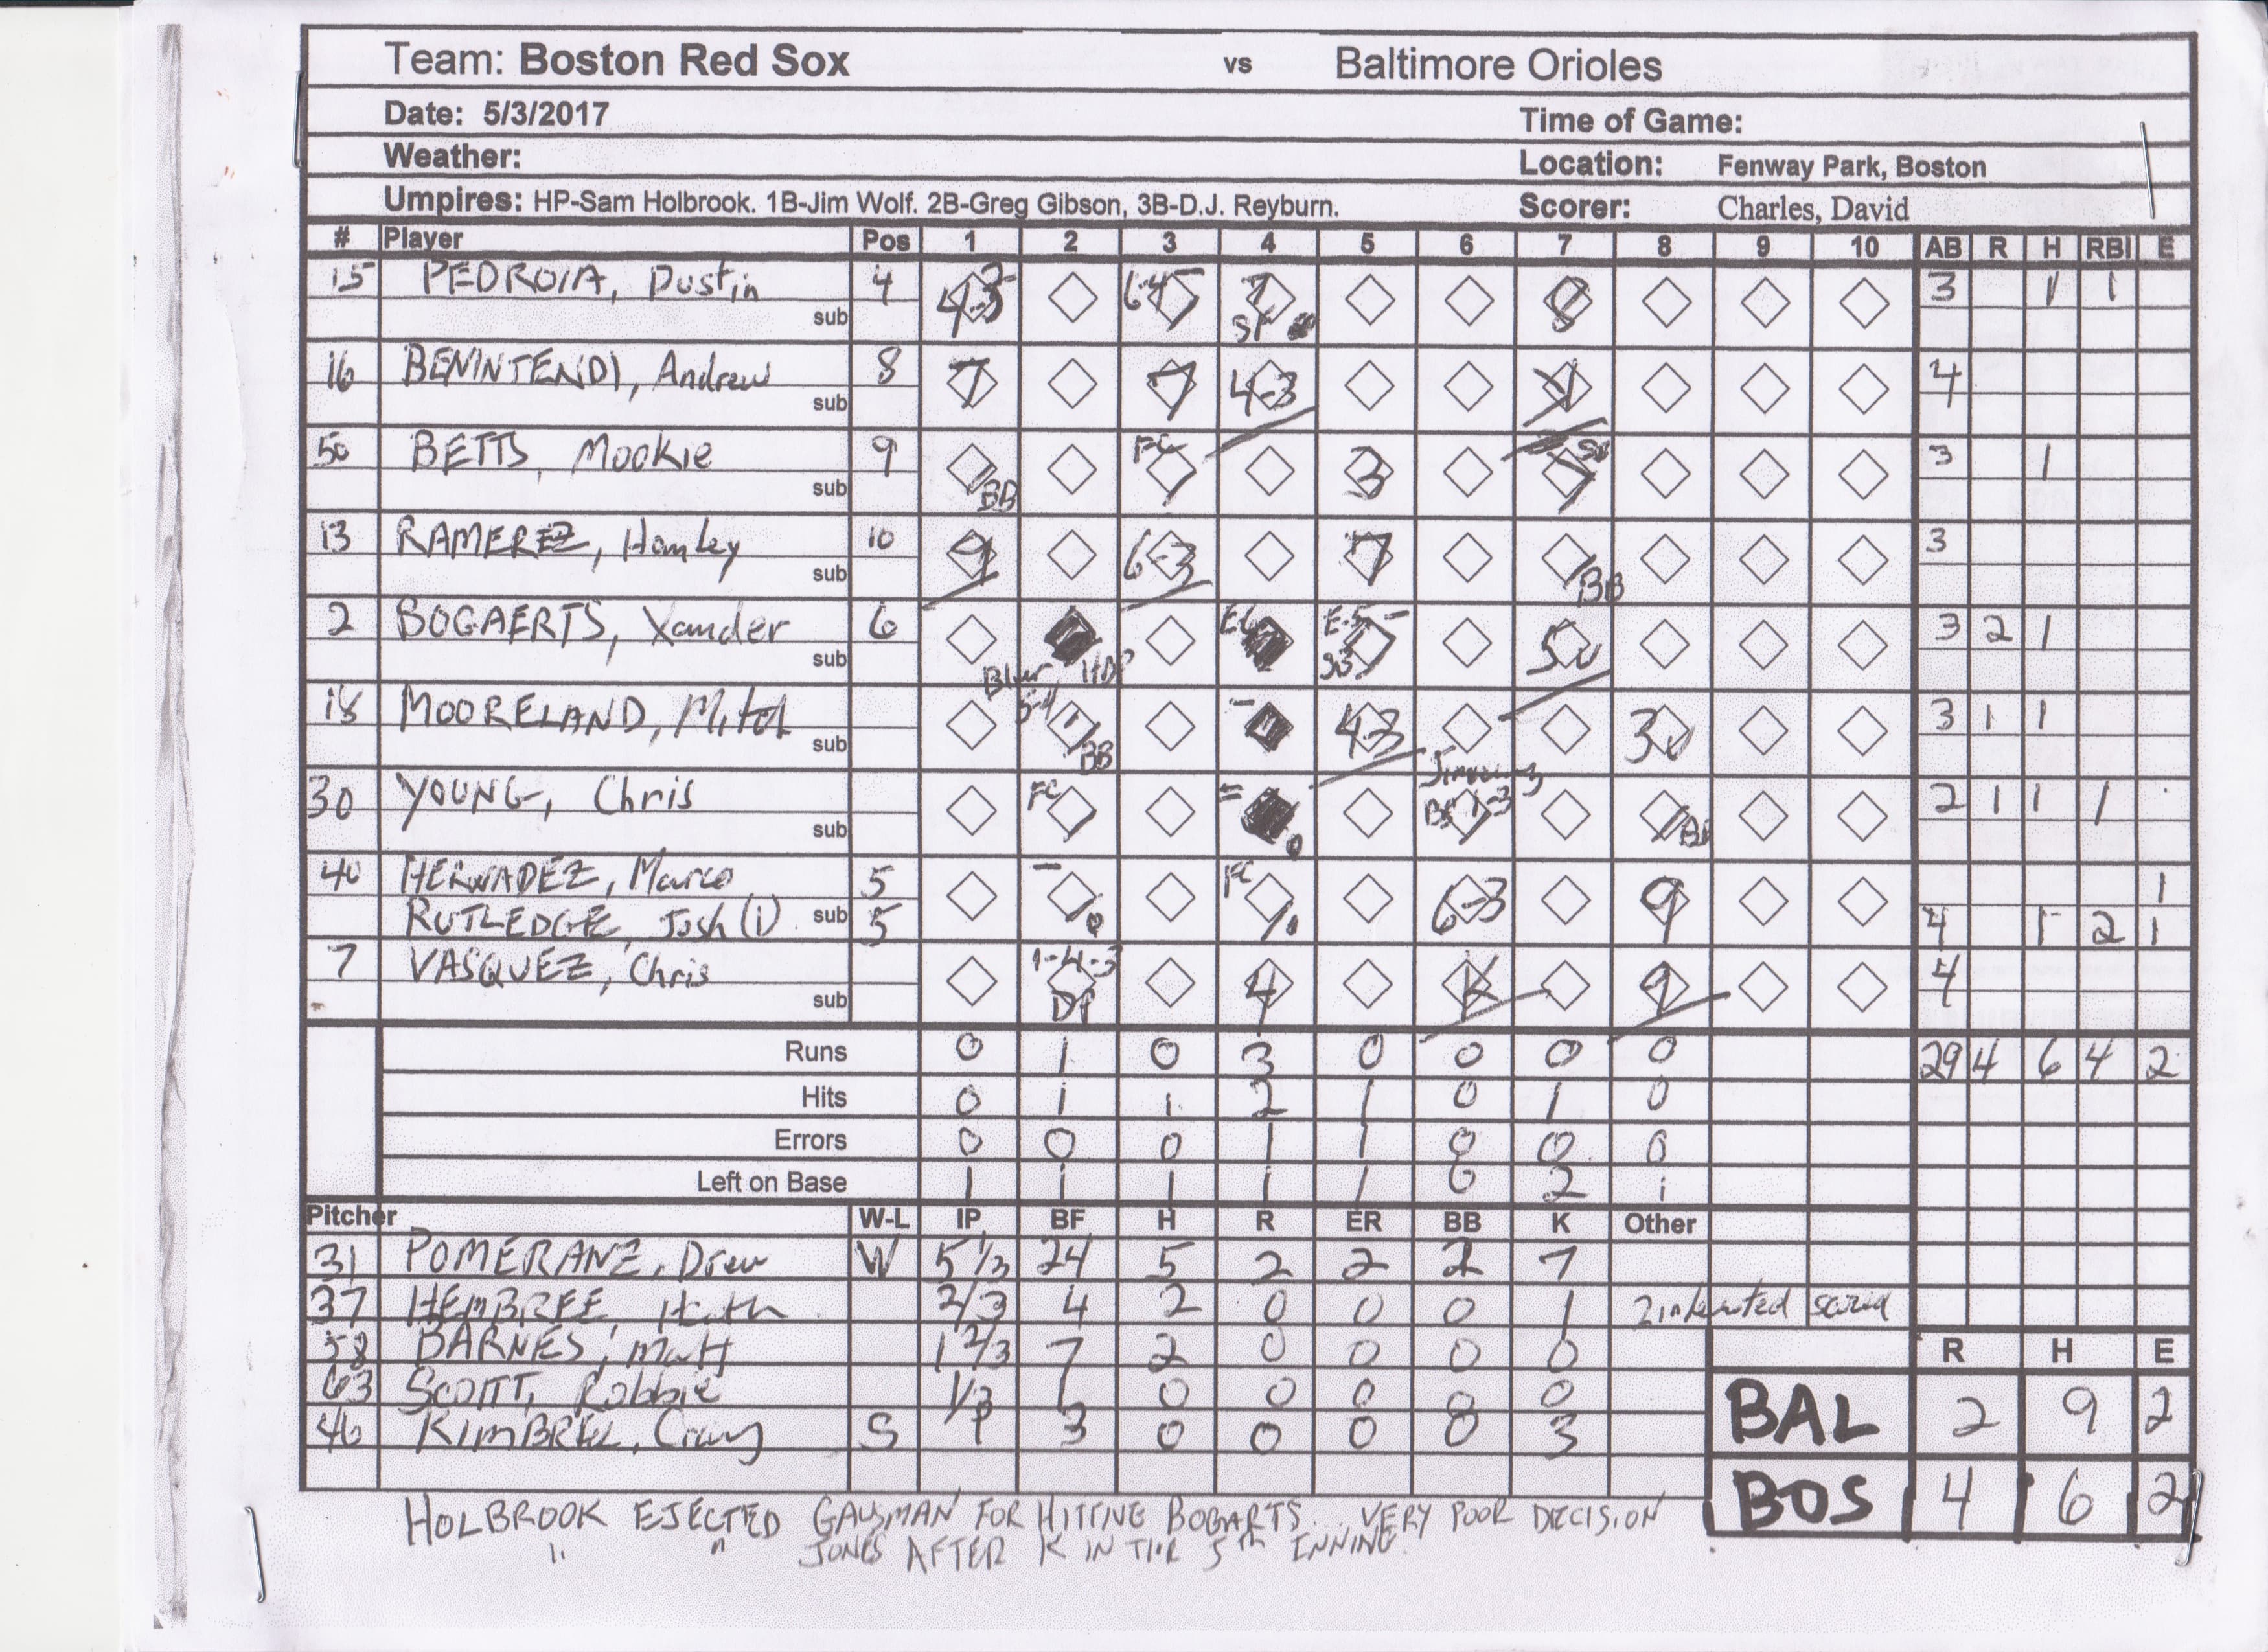 Team: Boston Red Sox vs Baltimore Orioles
Date: 5/3/2017 Time of Game:
Weather: Location: Fenway Park, Boston
Umpires: HP-Sam Holbrook. 1B-Jim Wolf. 2B-Greg Gibson, 3B-D.J. Reyburn. Scorer: Charles, David
# Player Pos 1 2 3 4 5 6 7 8 9 10 AB R H RBI E
15 PEDROIA, Dustin 4 4-3 6-4 7 8 3 1 1
sub SF
16 BENINTENDI, Andrew 8 7 7 4-3 4
sub
50 BETTS, Mookie 9 FC 3 3 1
sub BB
13 RAMEREZ, Hanley 10 9 6-3 7 3
sub BB
2 BOGAERTS, Xander 6 E6 E-5 5 3 2 1
sub SB
18 MOORELAND, Mitch 4-3 3 3 1 1
sub BB
30 YOUNG, Chris FC 1-3 2 1 1 1
sub
40 HERNADEZ, Marco 5 FC 6-3 9 1
RUTLEDGE, Josh (1) sub 5 4 1 2 1
7 VASQUEZ, Chris 1-4-3 4 K 9 4
sub DP
Runs 0 1 0 3 0 0 0 0 29 4 6 4 2
Hits 0 1 1 2 1 0 1 0
Errors 0 0 0 1 1 0 0 0
Left on Base 1 1 1 1 1 0 2 1
Pitcher W-L IP BF H R ER BB K Other
31 POMERANZ, Drew W 5 1/3 24 5 2 2 2 7
37 HEMBREE, Heath 2/3 4 2 0 0 0 1 2 inherited scored
58 BARNES, Matt 1 2/3 7 2 0 0 0 0
63 SCOTT, Robbie 1/3 1 0 0 0 0 0
46 KIMBREL, Craig S 1 3 0 0 0 0 3
R H E
BAL 2 9 2
BOS 4 6 2
HOLBROOK EJECTED GAUSMAN FOR HITTING BOGARTS... VERY POOR DECISION
" " JONES AFTER K IN THE 5th INNING.